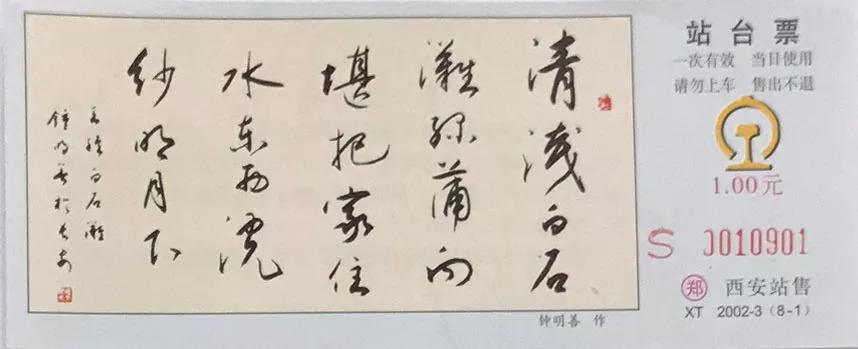 清浅白石
灘绿蒲向
堪把家住
水东西浣
纱明月下
王维白石灘
钟明善於长安
钟明善 作
站台票
一次有效 当日使用
请勿上车 售出不退
1.00元
S 0010901
郑 西安站售
XT 2002-3（8-1）